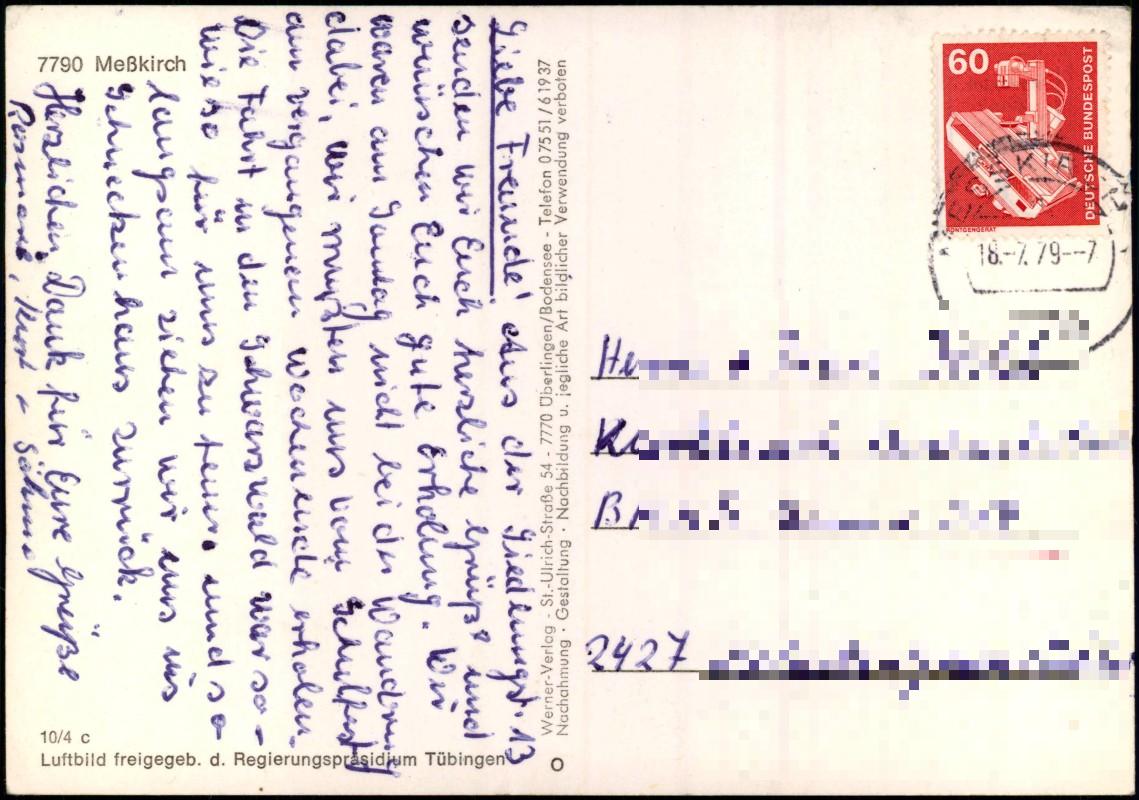 7790 Meßkirch
Liebe Freunde! Aus der Siedlungst. 13
senden wir Euch herzliche Grüße und
wünschen Euch gute Erholung. Wir
waren am Sonntag nicht bei der Wandrung
dabei, wir mußten uns vom Schulfest
am vergangenen Wochenende erholen.
Die Fahrt in den Schwarzwald war so-
wieso für uns zu teuer und so
langsam ziehen wir uns ins
Schneckenhaus zurück.
Herzlichen Dank für Eure Grüße
Rosmarie, Kurt + Söhne
10/4 c
Luftbild freigegeb. d. Regierungspräsidium Tübingen
Werner-Verlag - St.-Ulrich-Straße 54 - 7770 Überlingen/Bodensee - Telefon 07551/61937
Nachahmung · Gestaltung · Nachbildung u. jegliche Art bildlicher Verwendung verboten
60
DEUTSCHE BUNDESPOST
RÖNTGENGERÄT
18.-7.79--7
2427